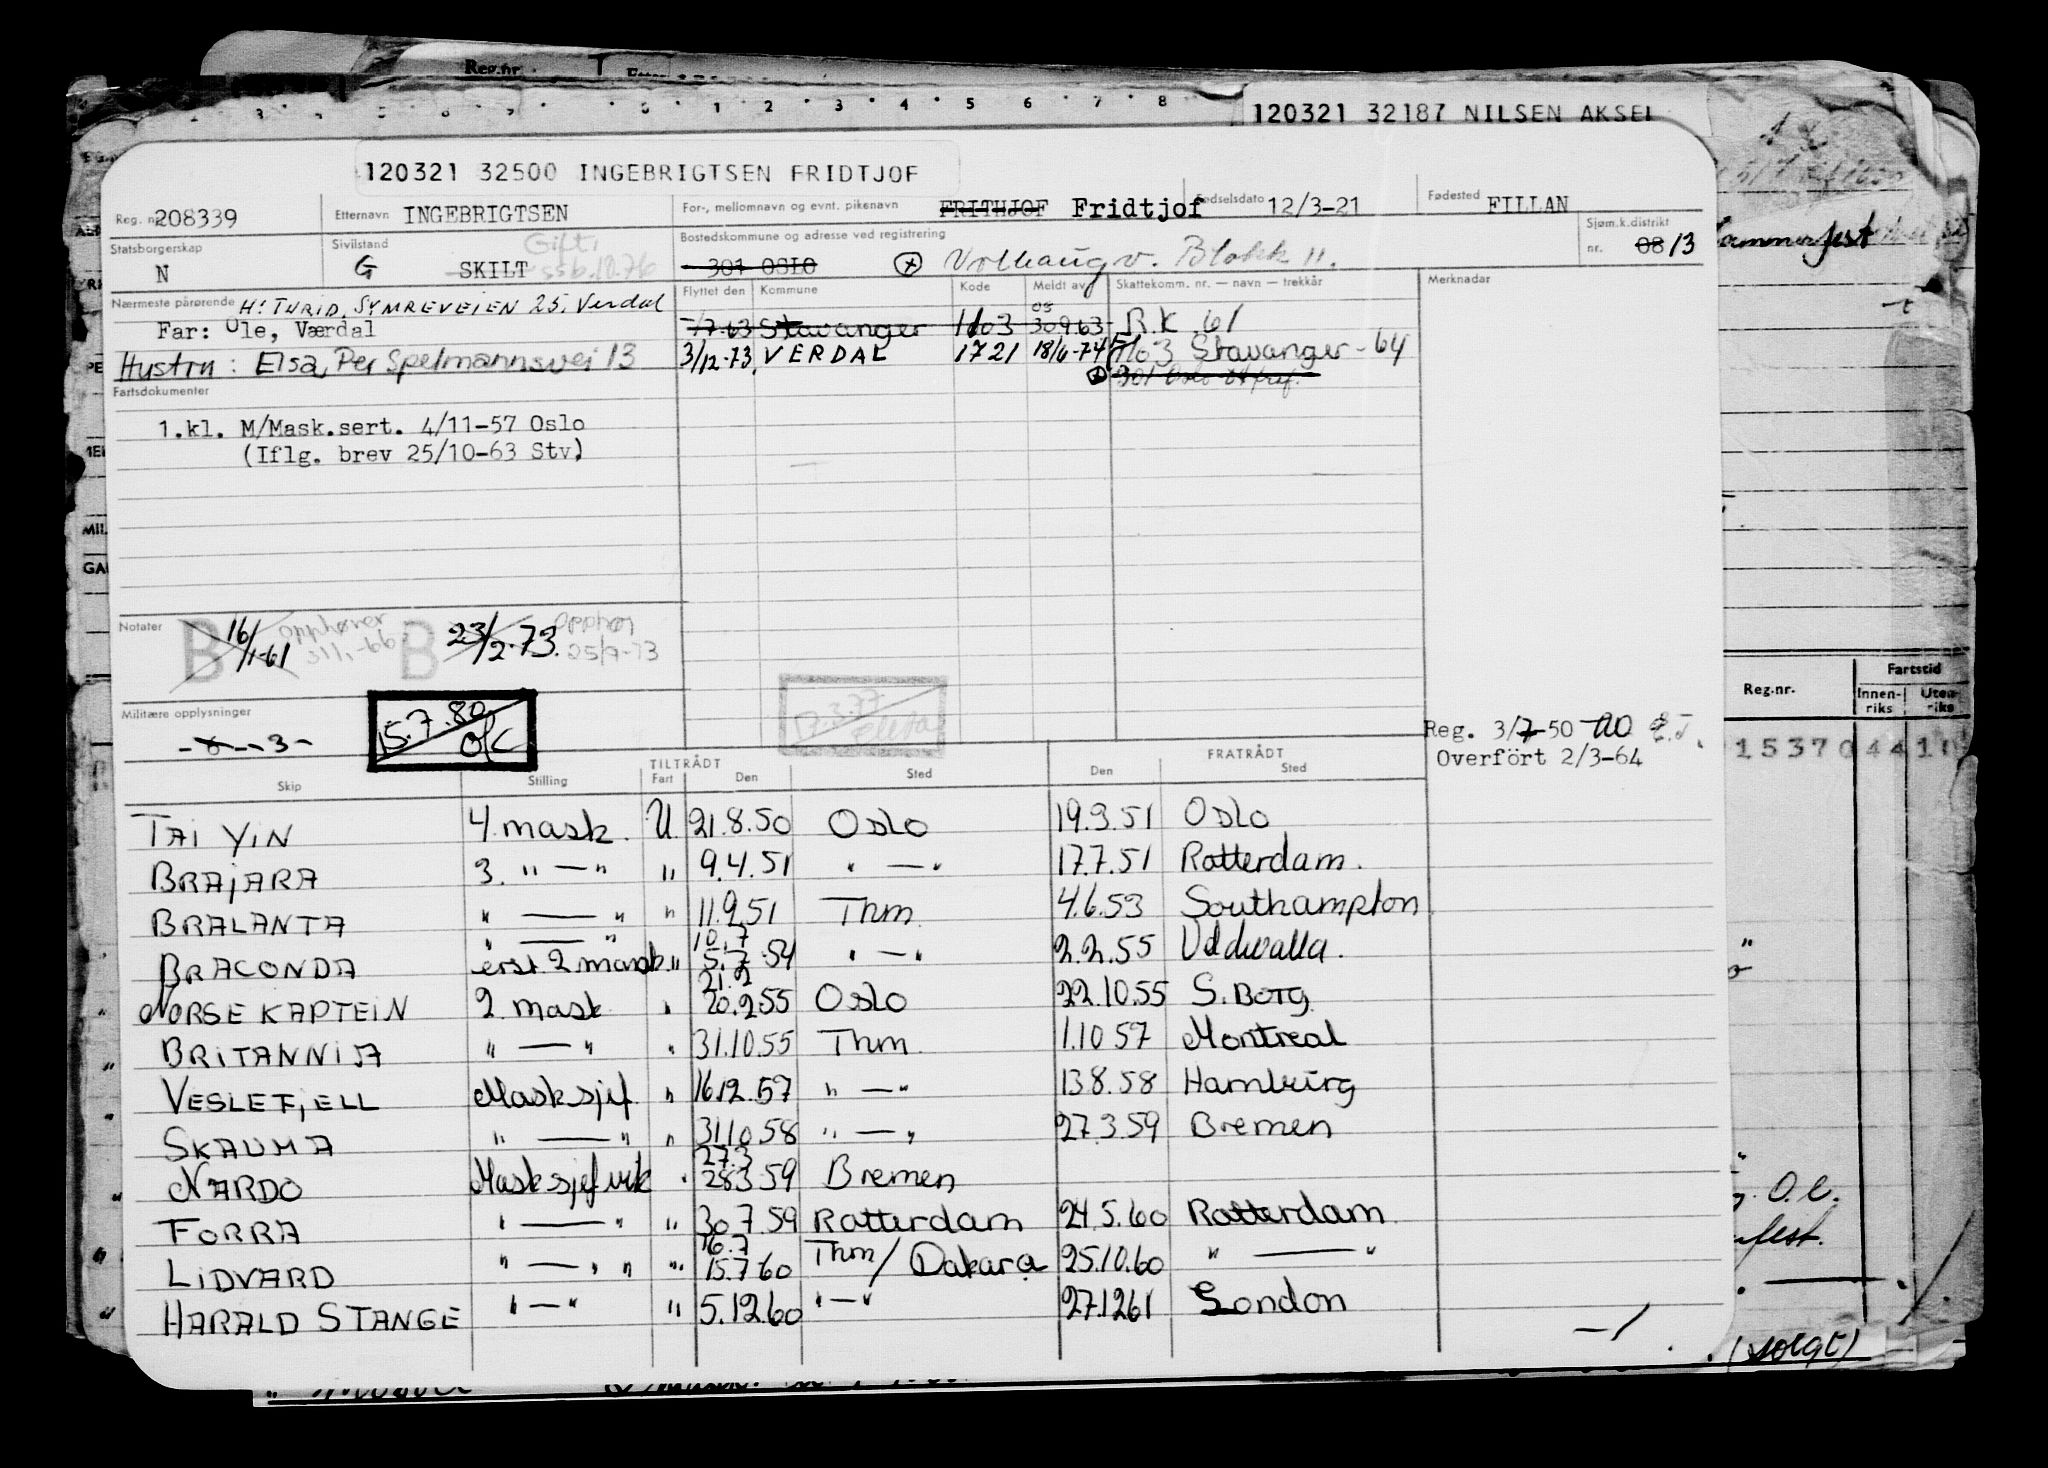 Reg.nr.
120321 32187 NILSEN AKSEL
120321 32500 INGEBRIGTSEN FRIDTJOF
Reg. nr. 208339 Etternavn INGEBRIGTSEN For-, mellomnavn og evnt. pikenavn FRITHJOF Fridtjof Fødselsdato 12/3-21 Fødested FILLAN
Statsborgerskap N Sivilstand G SKILT Gift, 6.10.76 Bostedskommune og adresse ved registrering 301 OSLO Volhaugv. Blokk 11. Sjøm.k.distrikt nr. 08 13
Nærmeste pårørende H: TURID, SYMREVEIEN 25, Verdal
Far: Ole, Værdal
Hustru: Elsa, Per Spelmannsvei 13
Flyttet den Kommune Kode Meldt av Skattekomm. nr. — navn — trekkår Merknader
1/7-63 Stavanger 1103 30.9.63 R.K. 61
3/12-73, VERDAL 1721 18/6-74 1103 Stavanger - 64
301 Oslo
Fartsdokumenter
1.kl. M/Mask.sert. 4/11-57 Oslo
(Iflg. brev 25/10-63 Stv)
Notater B 16/1-61 opphører 31/1-66 B 23/2-73. Opphør 25/9-73
Militære opplysninger
- 8 - - 3 -
15.7.80
17.3.77
Reg. 3/7-50
Overfört 2/3-64
Skip Stilling TILTRÅDT Fart Den Sted FRATRÅDT Den Sted
TAI YIN 4. mask. U. 21.8.50 Oslo 19.3.51 Oslo
BRAJARA 3. " — " " 9.4.51 " — " 17.7.51 Rotterdam.
BRALANTA " — " " 11.9.51 Thm 4.6.53 Southampton
BRACONDA " — " erst. 2 mask " 10.7 5.7.54 " — " 2.2.55 Uddevalla.
NORSE KAPTEIN 2 mask " 21.2 20.2.55 Oslo 22.10.55 S. Borg
BRITANNIA " — " " 31.10.55 Thm. 1.10 57 Montreal
VESLEFJELL Masksjef " 16.12.57 " — " 13.8.58 Hamburg
SKAUMA " — " " 31.10.58 " — " 27.3.59 Bremen
NARDO Masksjef vik " 27.3 28.3 59 Bremen
FORRA " — " " 30.7.59 Rotterdam 24.5.60 Rotterdam
LIDVARD " — " " 16.7 15.7 60 Thm/Dakara 25.10.60 " — "
HARALD STANGE " — " " 5.12.60 " — " 27.12.61 London
Reg.nr. Fartstid
Innen-riks Uten-riks
15370 44 10
(solgt)